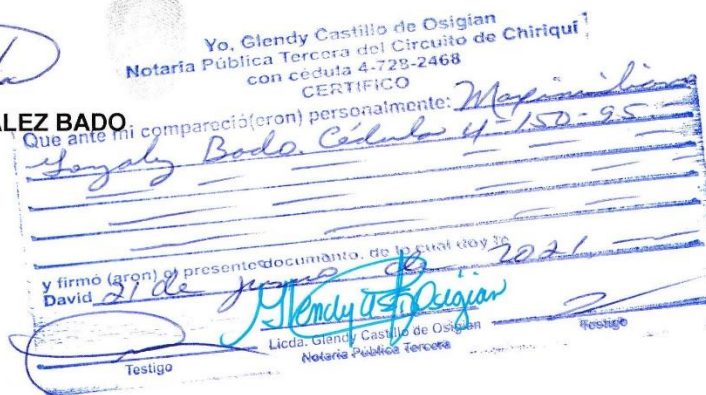 Yo, Glendy Castillo de Osigian
Notaria Pública Tercera del Circuito de Chiriquí
con cédula 4-728-2468
CERTIFICO
ALEZ BADO
Que ante mi compareció(eron) personalmente: Maximiliano
Gonzalez Bado. Cédula 4-150-95
y firmó (aron) el presente documento, de lo cual doy fe
David 21 de junio de 2021
Glendy de Osigian
Licda. Glendy Castillo de Osigian
Notaria Pública Tercera
Testigo
Testigo